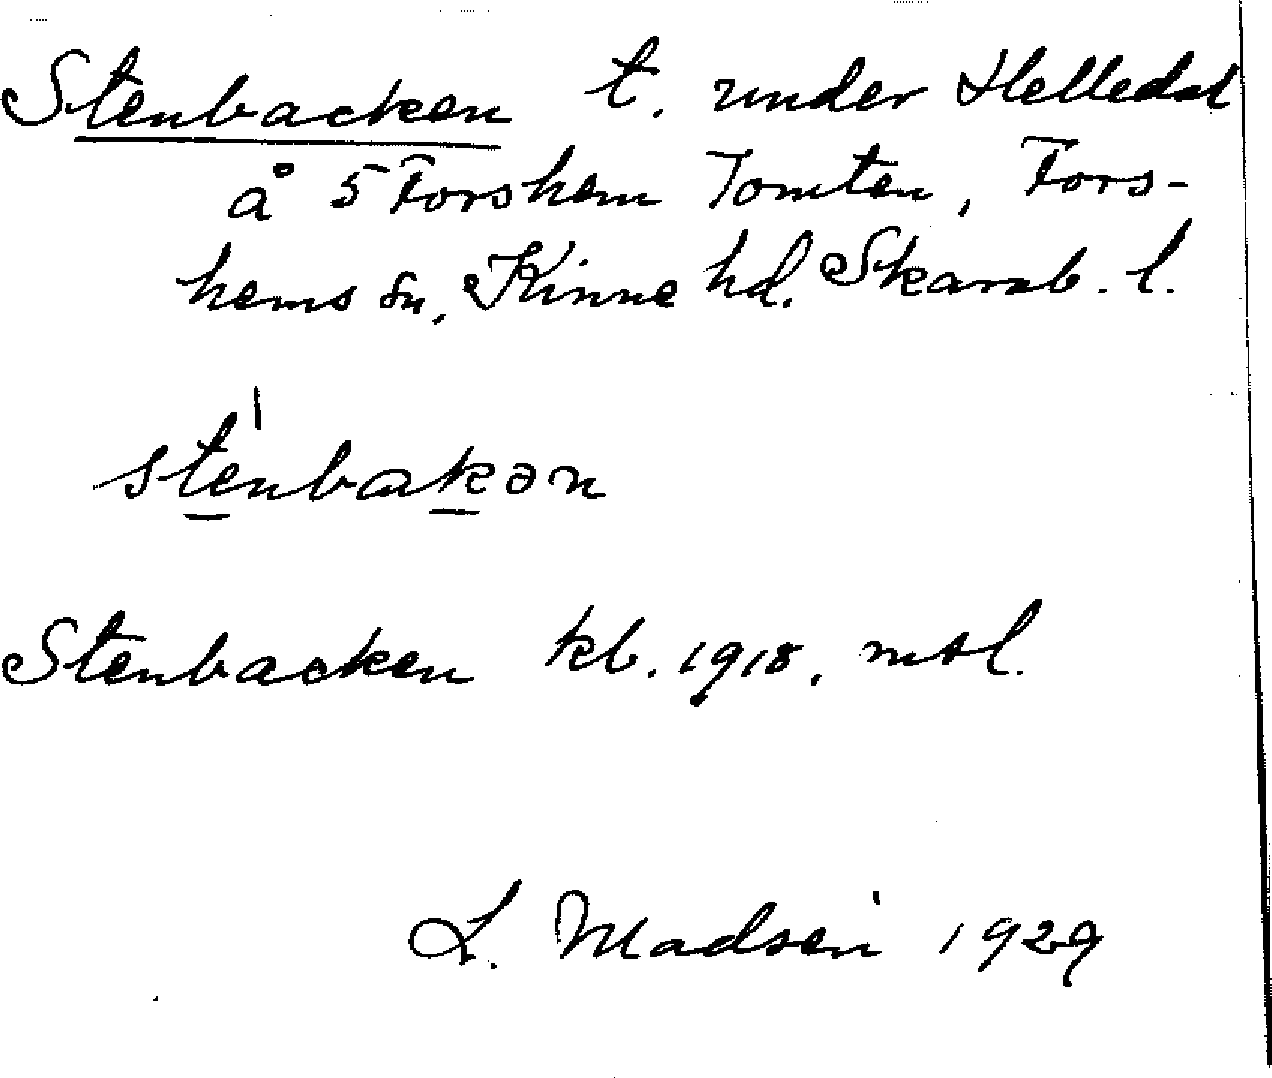 Stenbacken t. under Helledal
å 5 Forshem Tomten, Fors-
hems sn, Kinne hd. Skarab. l.
stenbakən
Stenbacken kb. 1918, mtl.
L. Madsen 1929